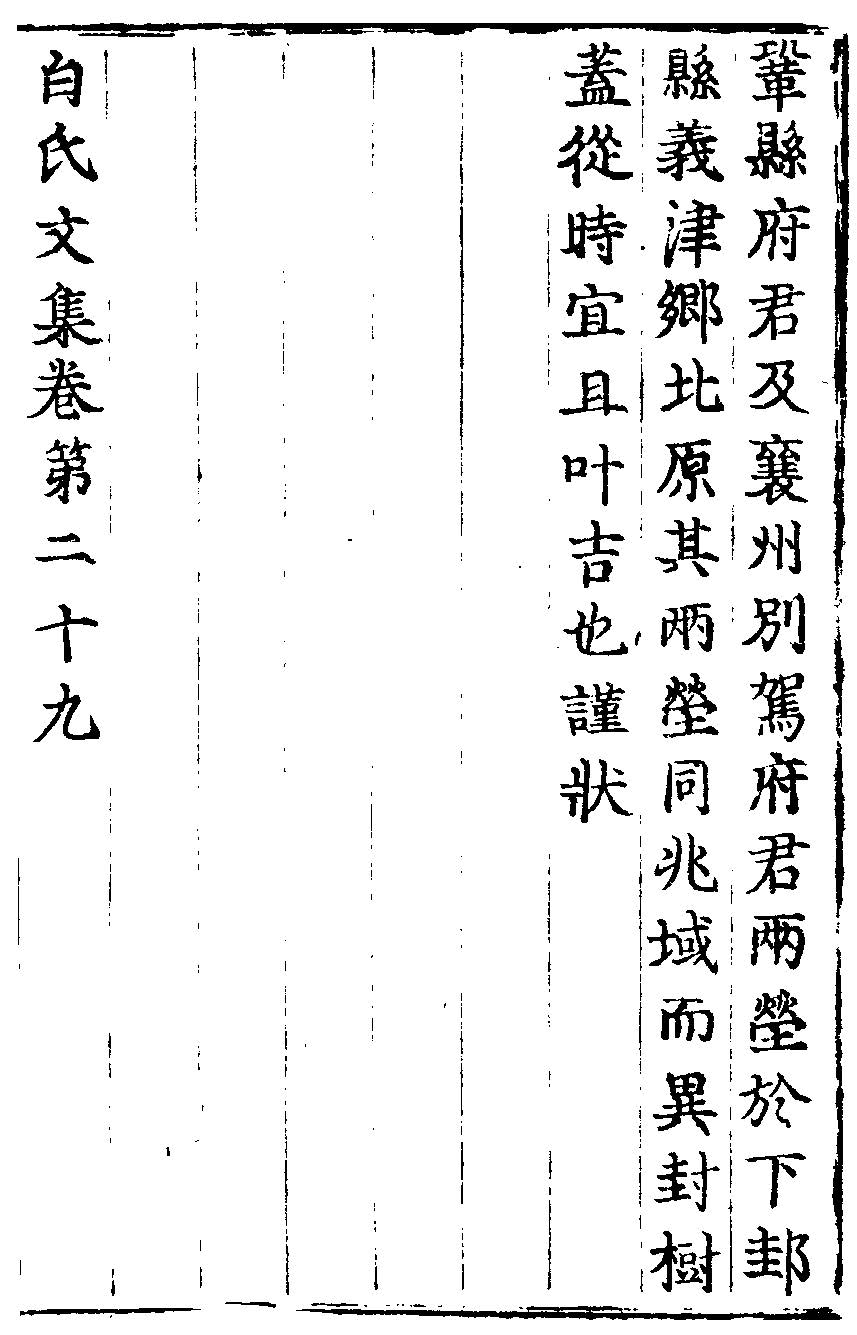 鞏縣府君及襄州別駕府君兩塋於下邽
縣義津鄉北原其兩塋同兆域而異封樹
蓋從時宜且叶吉也謹狀
白氏文集卷第二十九